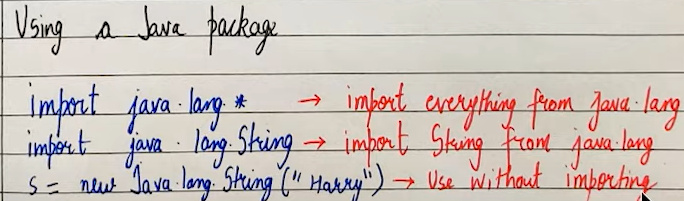 Using a Java package
import java.lang.* → import everything from Java.lang
import java.lang.String → import String from java.lang
s = new Java.lang.String("Harry") → Use without importing